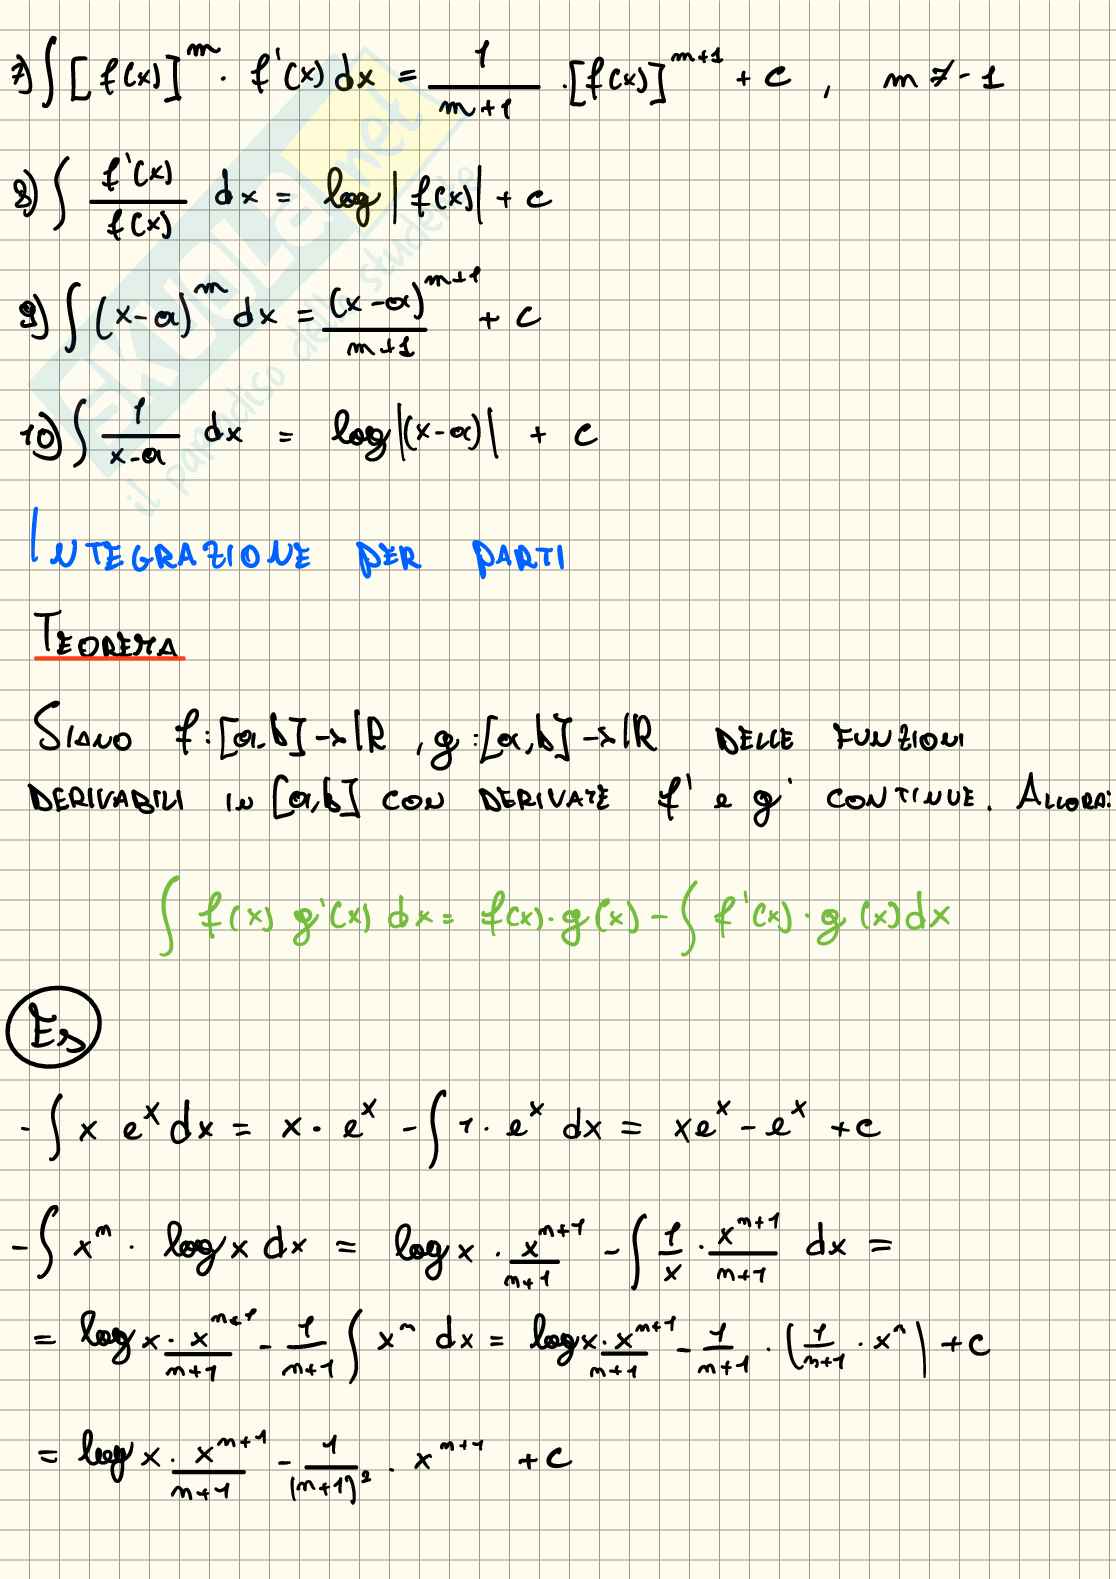 7) ∫ [f(x)]^m · f'(x) dx = 1/(m+1) · [f(x)]^(m+1) + c , m ≠ -1
8) ∫ f'(x)/f(x) dx = log |f(x)| + c
9) ∫ (x-a)^m dx = (x-a)^(m+1)/(m+1) + c
10) ∫ 1/(x-a) dx = log |(x-a)| + c
SKUOLA.net
il paradiso dello studente
INTEGRAZIONE PER PARTI
TEOREMA
SIANO f:[a,b]→ℝ , g:[a,b]→ℝ DELLE FUNZIONI
DERIVABILI IN [a,b] CON DERIVATE f' e g' CONTINUE. ALLORA:
∫ f(x) g'(x) dx = f(x)·g(x) - ∫ f'(x)·g(x) dx
Es
- ∫ x e^x dx = x · e^x - ∫ 1 · e^x dx = xe^x - e^x + c
- ∫ x^n · log x dx = log x · x^(n+1)/(n+1) - ∫ 1/x · x^(n+1)/(n+1) dx =
= log x · x^(n+1)/(n+1) - 1/(n+1) ∫ x^n dx = log x · x^(n+1)/(n+1) - 1/(n+1) · (1/(n+1) · x^n) + c
= log x · x^(n+1)/(n+1) - 1/(n+1)^2 · x^(n+1) + c